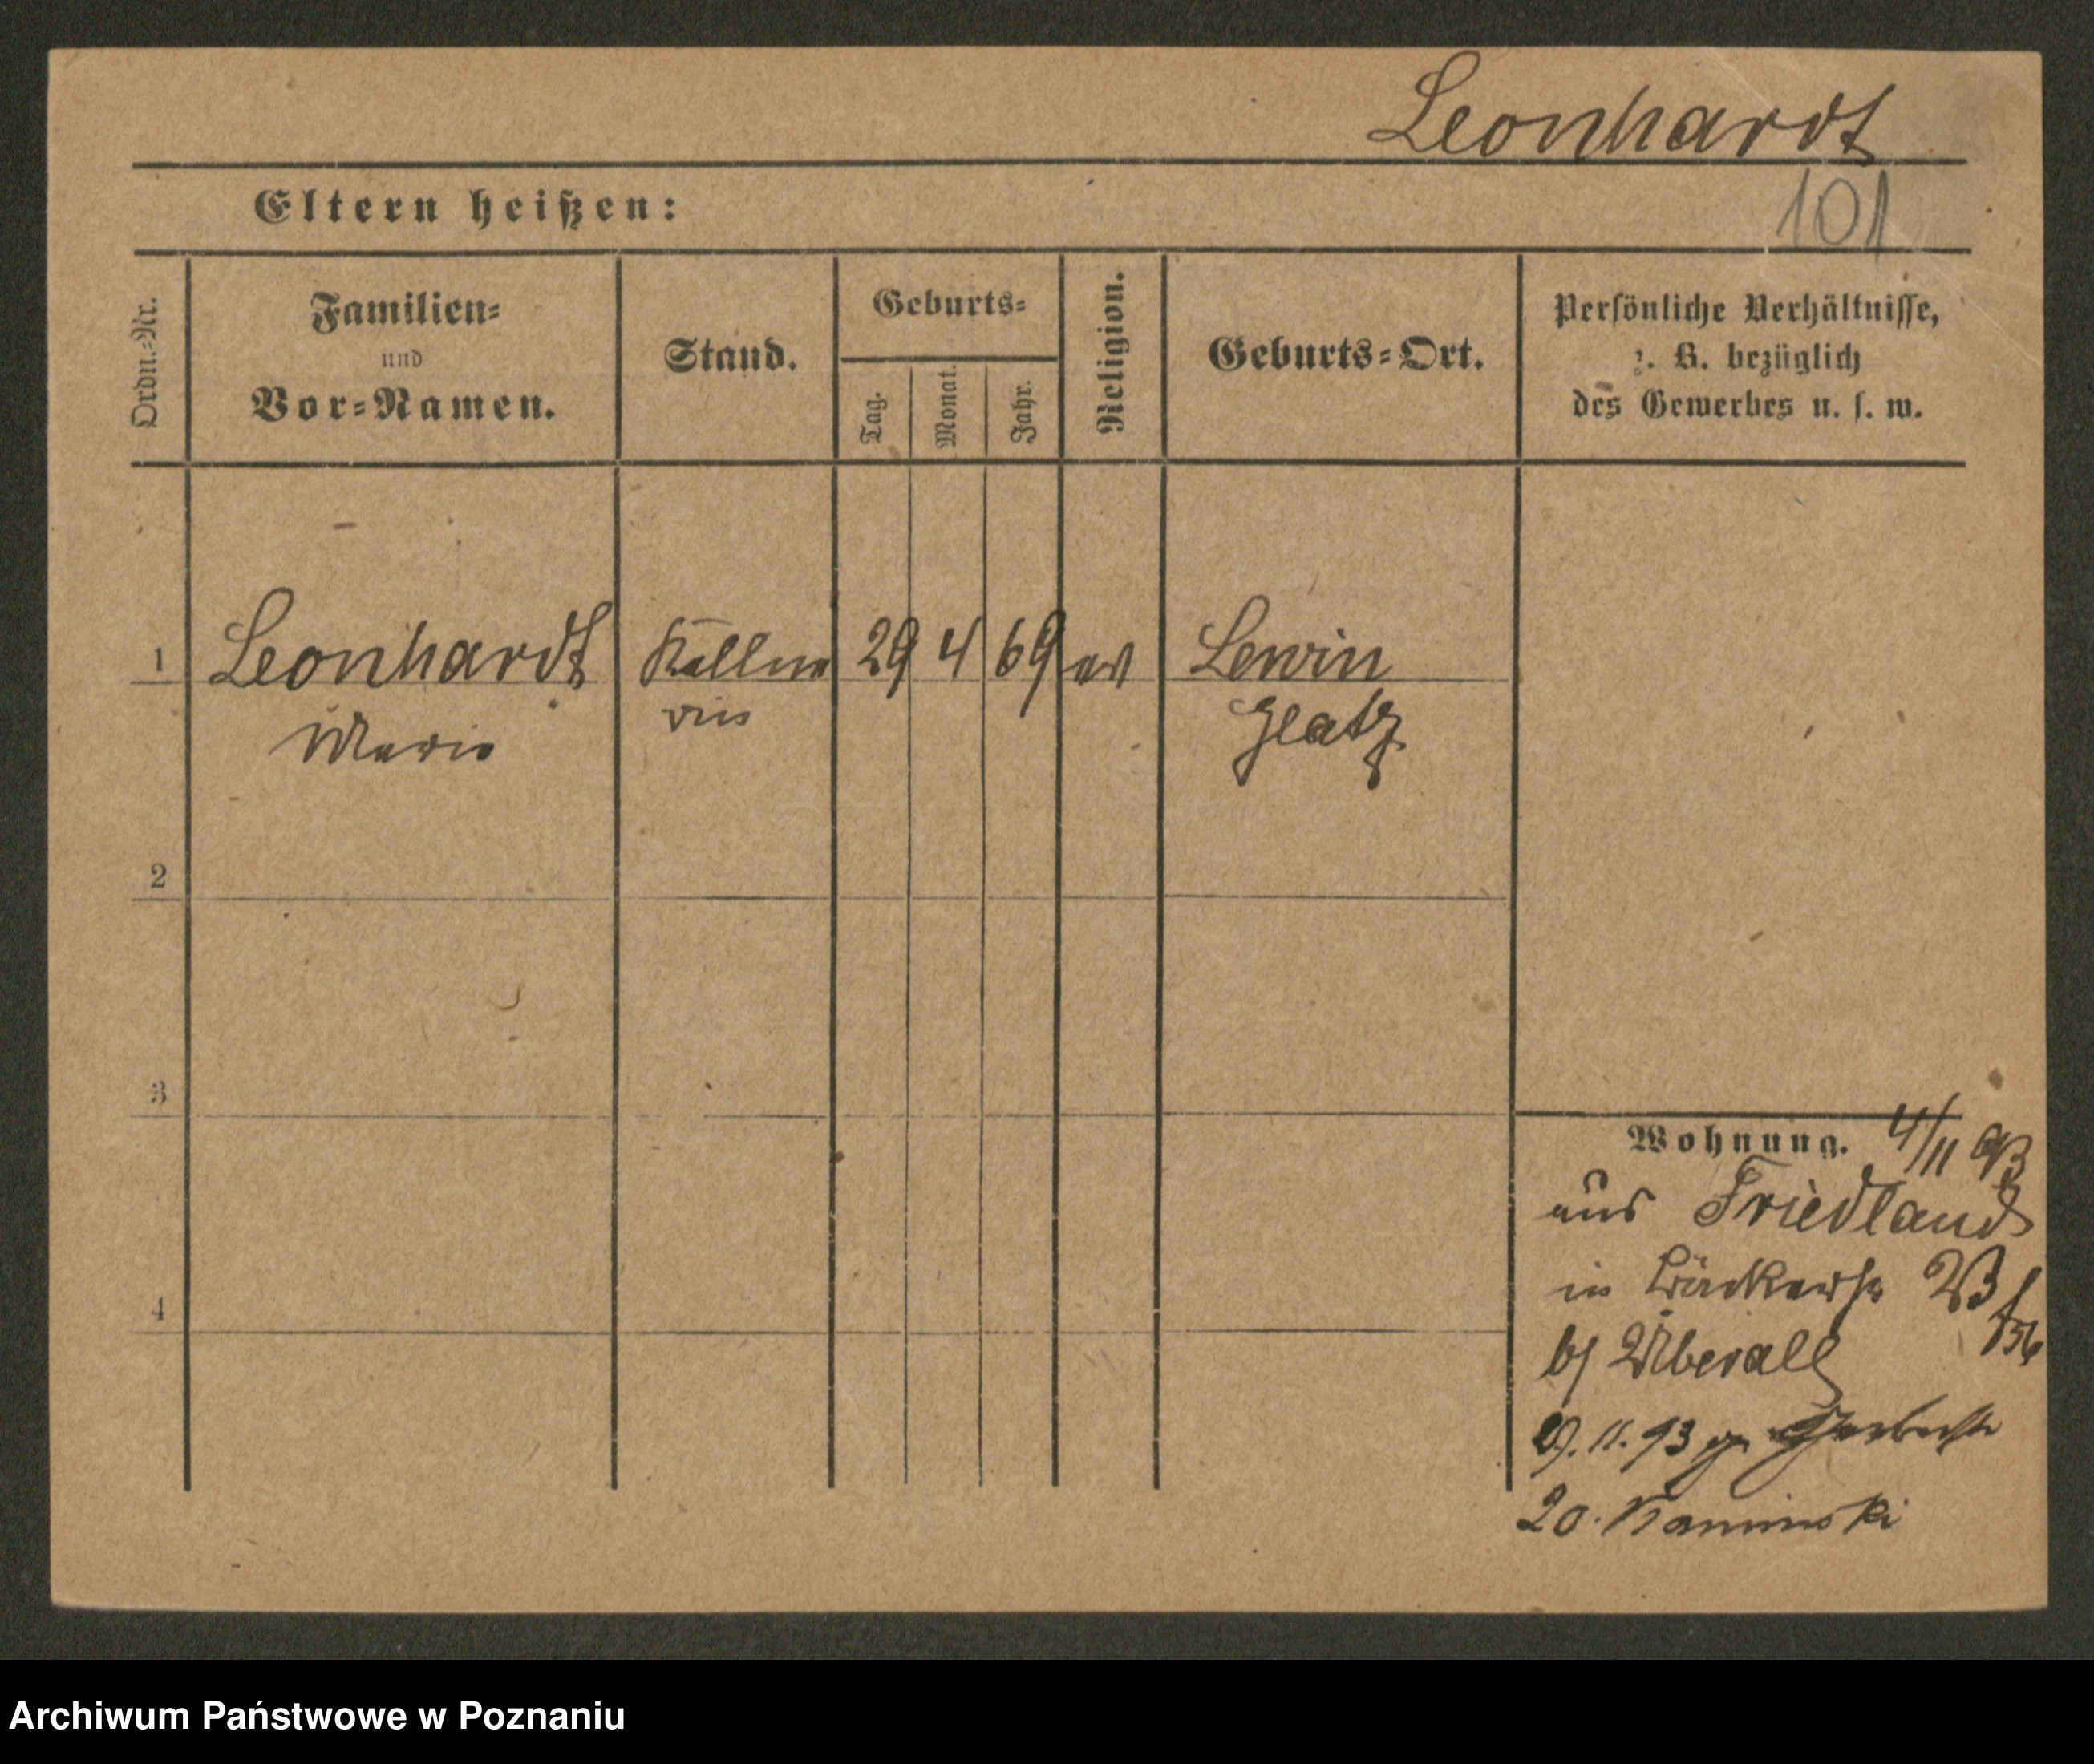 Leonhardt
101
Eltern heißen:
Ordn.-Nr.
Familien-
und
Vor-Namen.
Stand.
Geburts-
Tag.
Monat.
Jahr.
Religion.
Geburts-Ort.
Persönliche Verhältnisse,
z. B. bezüglich
des Gewerbes u. s. w.
1 Leonhardt Kellne 29 4 69 ev Lewin
Marie rin Glatz
2
3
4
Wohnung. 4/11 93
aus Friedland
in Bäckerstr 23
b/ Überall
29.11.93
20. Kaminski
Archiwum Państwowe w Poznaniu